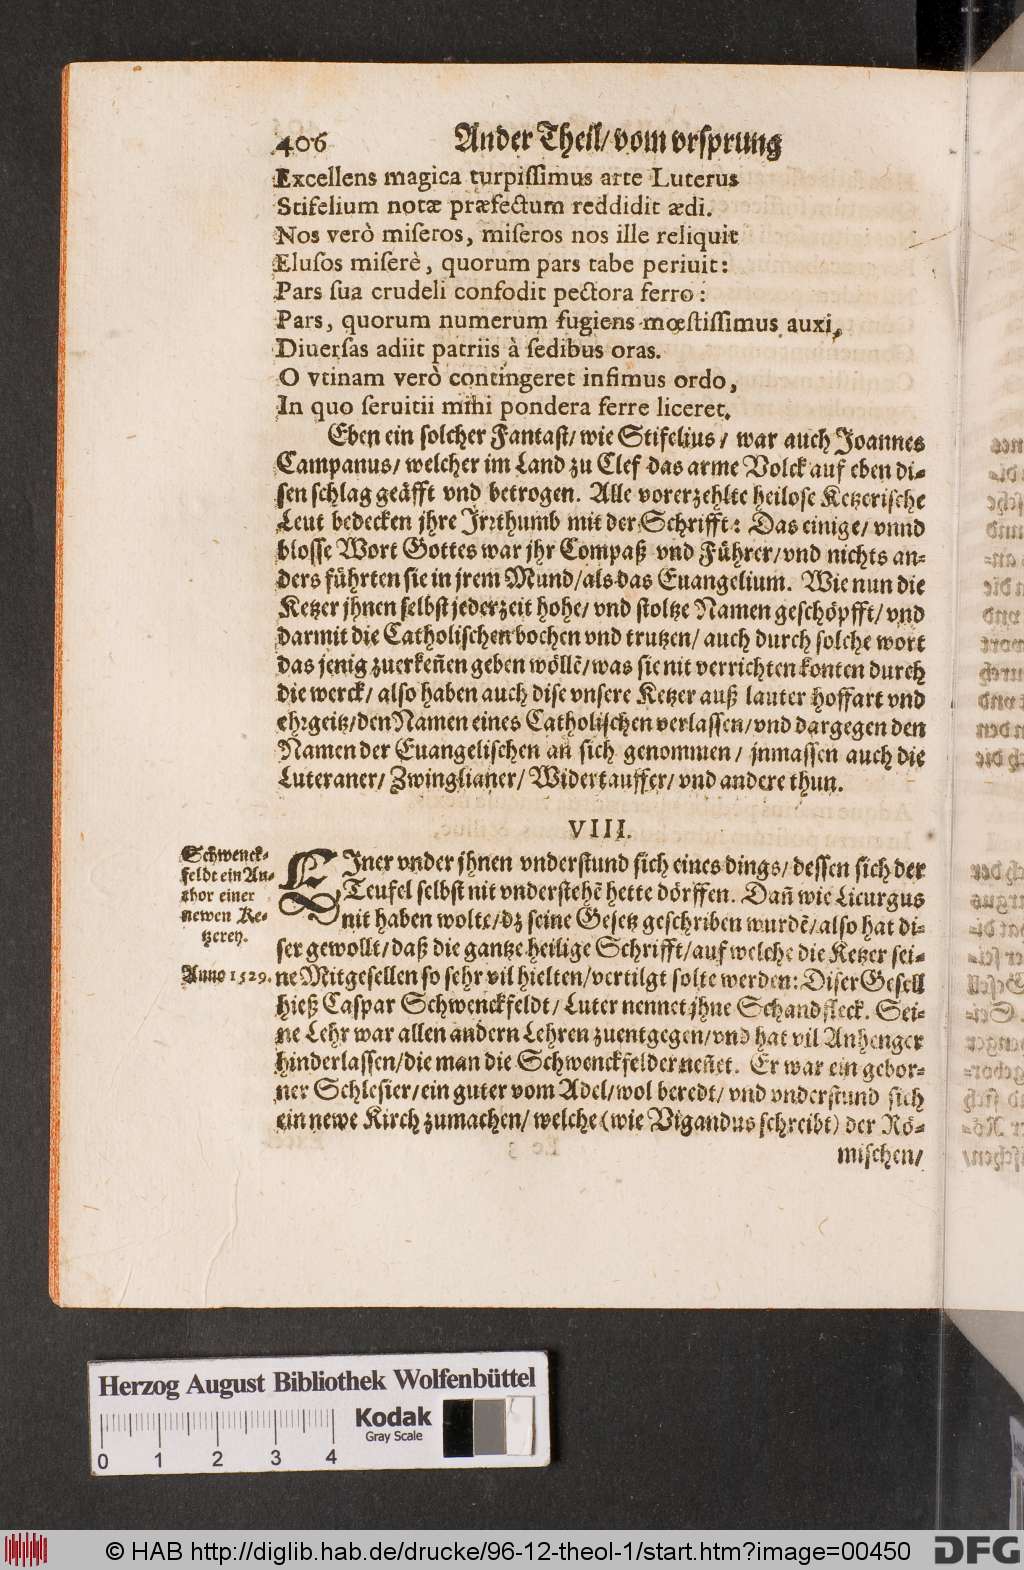 406 Ander Theil/ vom vrsprung
Excellens magica turpissimus arte Luterus
Stifelium notæ præfectum reddidit ædi.
Nos verò miseros, miseros nos ille reliquit
Elusos miserè, quorum pars tabe periuit:
Pars sua crudeli confodit pectora ferro:
Pars, quorum numerum fugiens mœstissimus auxi,
Diuersas adiit patriis à sedibus oras.
O vtinam verò contingeret infimus ordo,
In quo seruitii mihi pondera ferre liceret.
Eben ein solcher Fantast/ wie Stifelius/ war auch Joannes
Campanus/ welcher im Land zu Clef das arme Volck auf eben di-
sen schlag geäfft vnd betrogen. Alle vorerzehlte heilose Ketzerische
Leut bedecken jhre Irrthumb mit der Schrifft: Das einige/ vnnd
blosse Wort Gottes war jhr Compaß vnd Führer/ vnd nichts an-
ders führten sie in jrem Mund/ als das Euangelium. Wie nun die
Ketzer jhnen selbst jederzeit hohe/ vnd stoltze Namen geschöpfft/ vnd
darmit die Catholischen bochen vnd trutzen/ auch durch solche wort
das jenig zuerkeñen geben wöllẽ/ was sie nit verrichten konten durch
die werck/ also haben auch dise vnsere Ketzer auß lauter hoffart vnd
ehrgeitz/ den Namen eines Catholischen verlassen/ vnd dargegen den
Namen der Euangelischen an sich genommen/ jnmassen auch die
Luteraner/ Zwinglianer/ Widertauffer/ vnd andere thun.
VIII.
Schwenck-
feldt ein Au-
thor einer
newen Ke-
tzerey.
Anno 1529.
EIner vnder jhnen vnderstund sich eines dings/ dessen sich der
Teufel selbst nit vnderstehẽ hette dörffen. Dañ wie Licurgus
nit haben wolte/ dz seine Gesetz geschriben wurdẽ/ also hat di-
ser gewollt/ daß die gantze heilige Schrifft/ auf welche die Ketzer sei-
ne Mitgesellen so sehr vil hielten/ vertilgt solte werden: Diser Gesell
hieß Caspar Schwenckfeldt/ Luter nennet jhne Schandfleck. Sei-
ne Lehr war allen andern Lehren zuentgegen/ vnd hat vil Anhenger
hinderlassen/ die man die Schwenckfelder neñet. Er war ein gebor-
ner Schlesier/ ein guter vom Adel/ wol beredt/ vnd vnderstund sich
ein newe Kirch zumachen/ welche (wie Vigandus schreibt) der Rö-
mischen/
Herzog August Bibliothek Wolfenbüttel
Kodak
Gray Scale
0 1 2 3 4
© HAB http://diglib.hab.de/drucke/96-12-theol-1/start.htm?image=00450
DFG